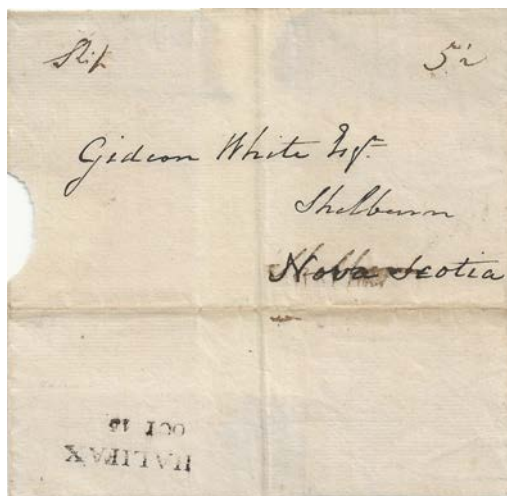 Ship 5½
Gideon White Esqr.
Shelburn
Nova Scotia
HALIFAX
OCT 15